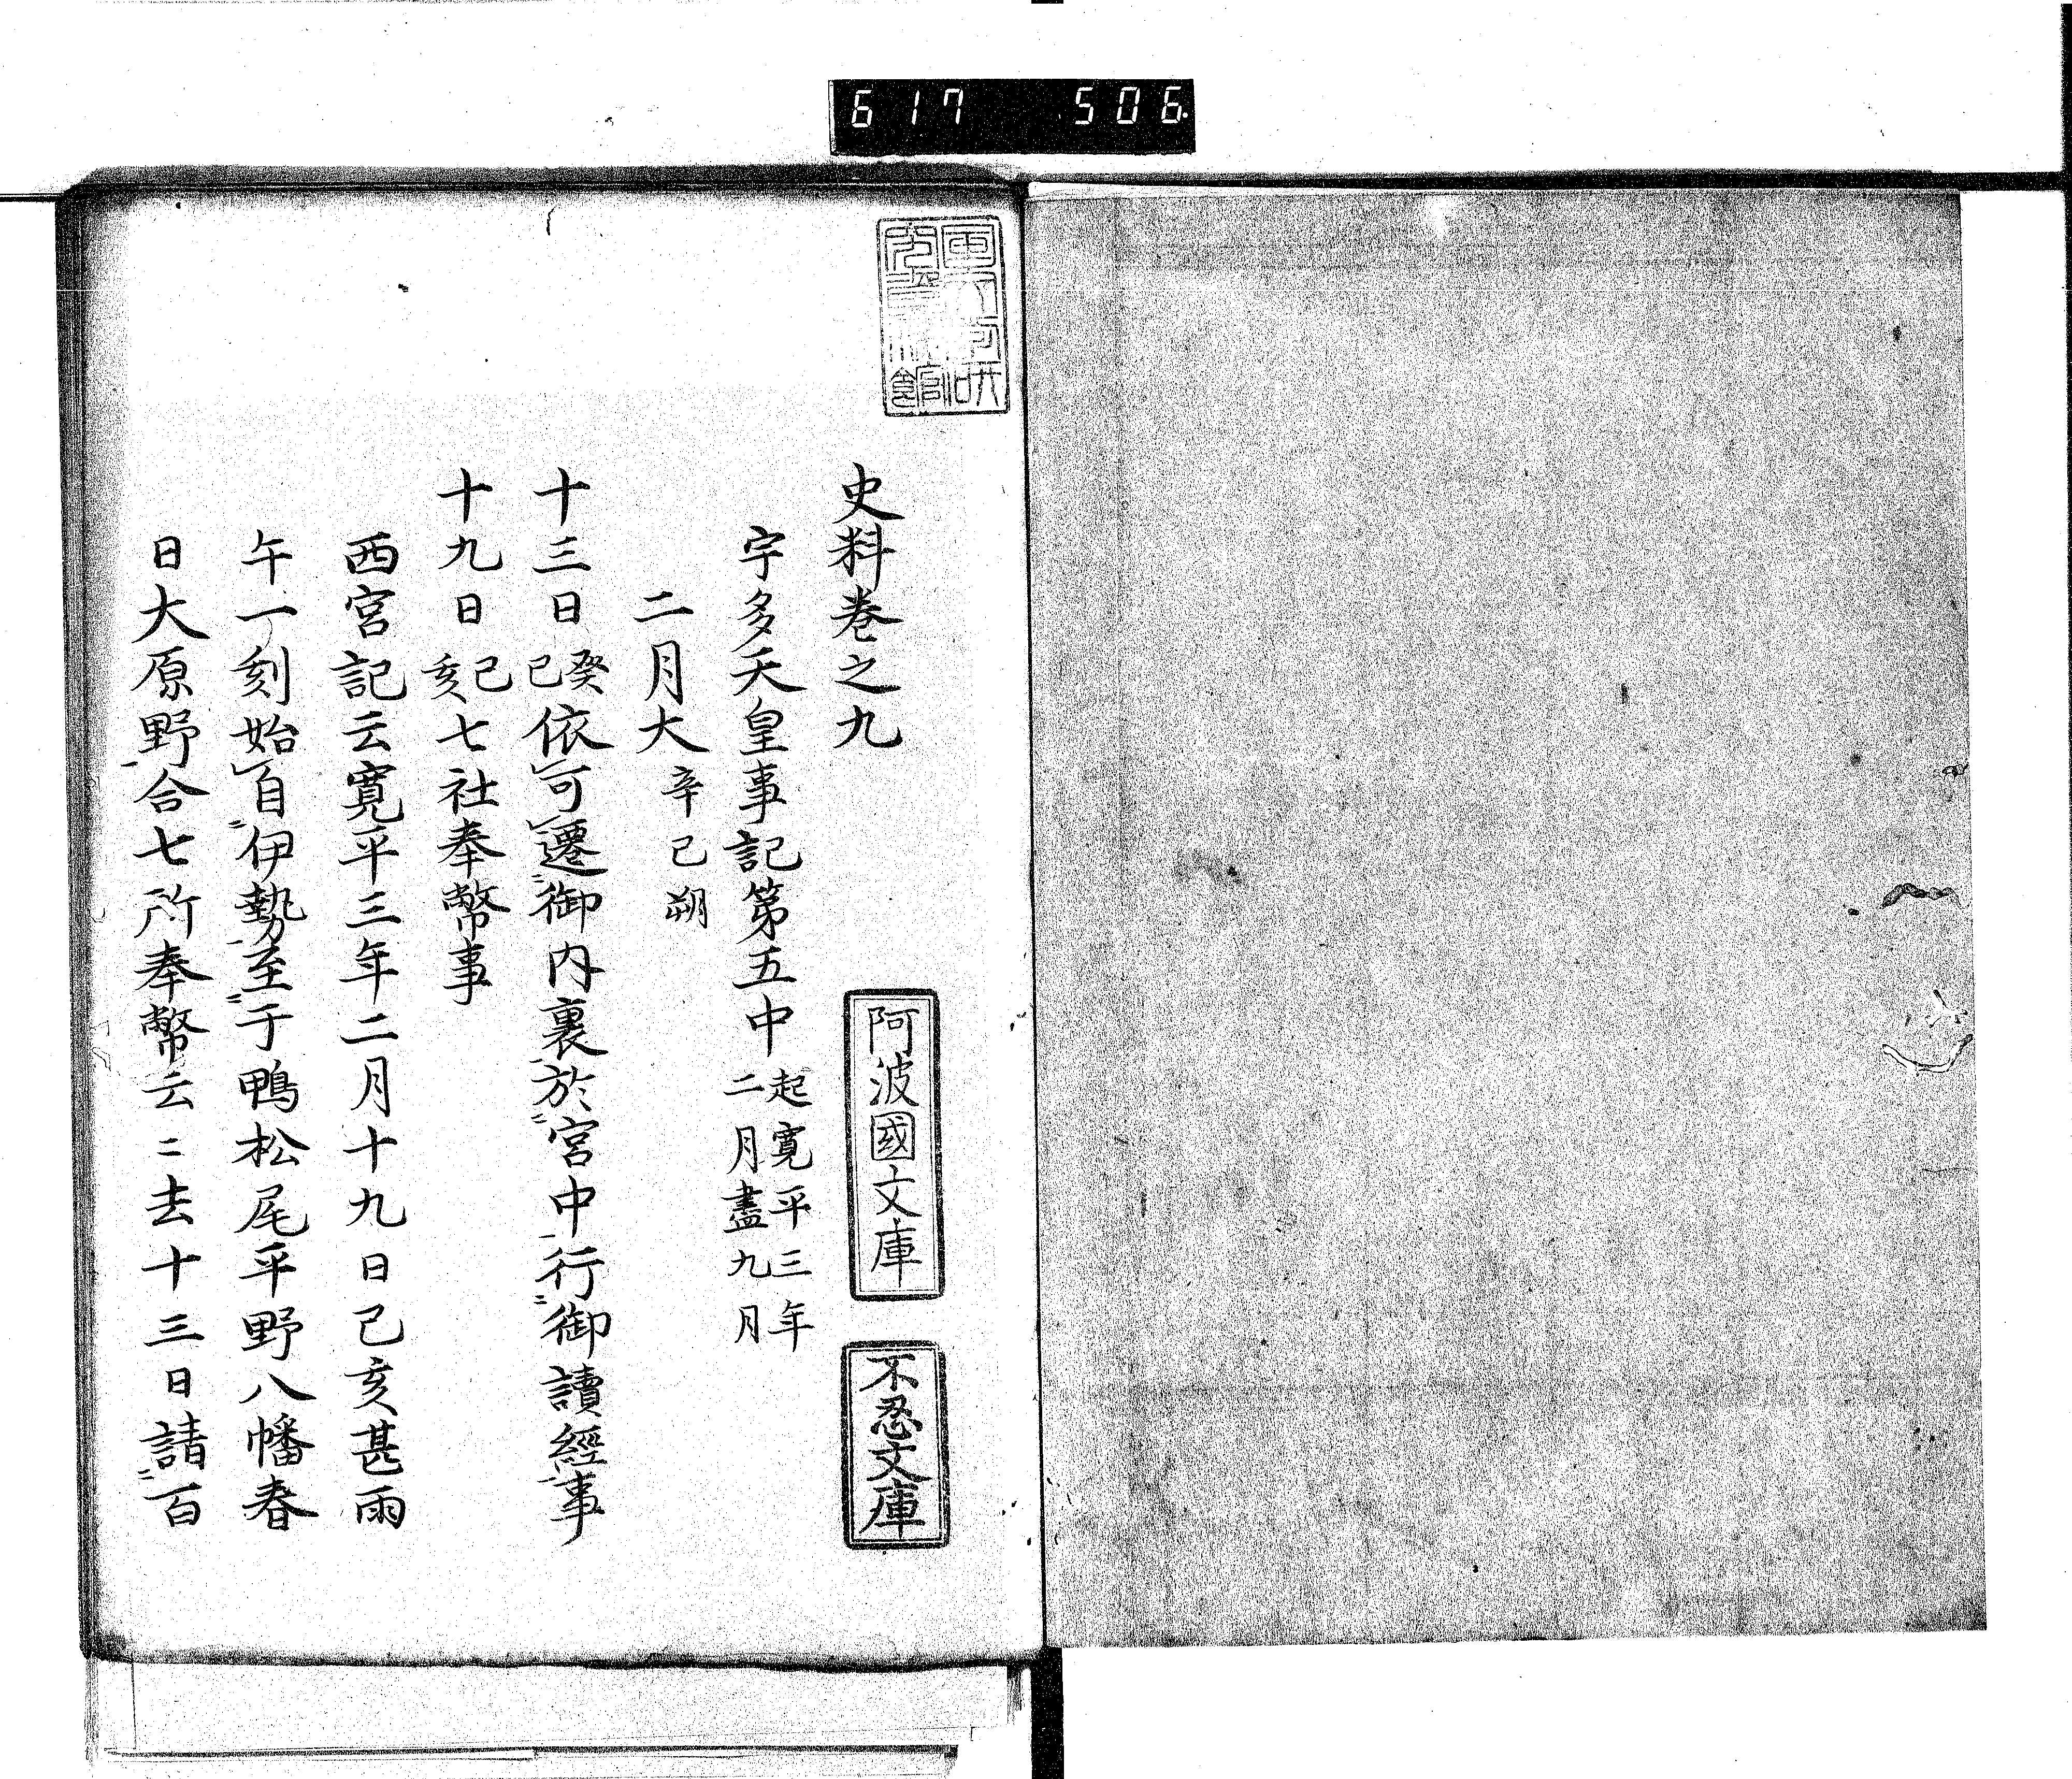 617 506
史料卷之九
阿波國文庫
不忍文庫
宇多天皇事記第五中 起寛平三年
二月盡九月
二月大 辛己朔
十三日 癸己 依可遷御内裏於宮中行御讀經事
十九日 己亥 七社奉幣事
西宮記云寛平三年二月十九日己亥甚雨
午一刻始自伊勢至于鴨松尾平野八幡春
日大原野合七所奉幣云〻去十三日請百